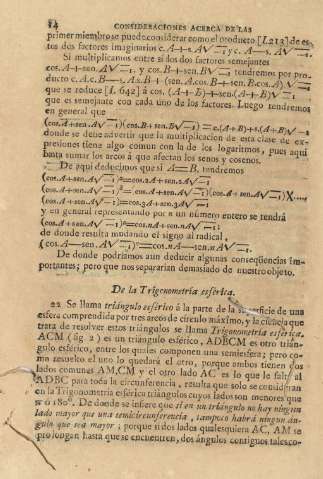 14 CONSIDERACIONES ACERCA DE LAS
primer miembro se puede considerar como el producto [L213] de es-
tos dos factores imaginarios c.A+s.A√−1, y c.A−s.A√−1.
Si multiplicamos entre sí dos dos factores semejantes
cos.A+sen.A√−1, y cos.B+sen.B√−1 tendremos por pro-
ducto c.A.c.B−s.A.s.B+(sen.A.cos.B+sen.B.cos.A) √−1
que se reduce [L 642] á cos.(A+B)+sen.(A+B)√−1
que es semejante con cada uno de los factores. Luego tendremos
en general que
(cos.A+sen.A√−1)(cos.B+sen.B√−1)=c.(A+B)+s.(A+B)√−1
donde se debe advertir que la multiplicacion de esta clase de ex-
presiones tiene algo comun con la de los logaritmos, pues aquí
basta sumar los arcos á que afectan los senos y cosenos.
De aquí dedecimos que si A=B, tendremos
(cos.A+sen.A√−1)²=cos.2A+sen.2A√−1
(cos.A+sen.A√−1)³=(cos.A+sen.A√−1)²(cos.A+sen.A√−1)X
(cos.A+sen.A√−1)=cos.3A+sen.3A√−1
y en general representando por n un número entero se tendrá
(cos.A+sen.A√−1)ⁿ=cos.nA+sen.nA√−1;
de donde resulta mudando el signo al radical,
(cos.A−sen.A√−1)ⁿ=cos.nA−sen.nA√−1.
De donde podríamos aun deducir algunas conseqüencias im-
portantes; pero que nos separarían demasiado de nuestro objeto.
De la Trigonometría esférica.
22 Se llama triángulo esférico á la parte de la superficie de una
esfera comprendida por tres arcos de círculo máximo, y la ciencia que
trata de resolver estos triángulos se llama Trigonometría esférica.
ACM (fig 2) es un triángulo esférico, ADBCM es otro trián-
gulo esférico, entre los quales componen una semiesfera; pero co-
mo resuelto el uno lo quedará el otro, porque ambos tienen dos
lados comunes AM, CM y el otro lado AC es lo que le falta al
ADBC para toda la circunferencia, resulta que solo se consideran
en la Trigonometría esférica triángulos cuyos lados son menores que
π ó 180°. De donde se infiere que si en un triángulo no hay ningun
lado mayor que una semicircunferencia, tampoco habrá ningun án-
gulo que sea mayor; porque si dos lados qualesquiera AC, AM se
prolongan hasta que se encuentren, dos ángulos contiguos tales co-